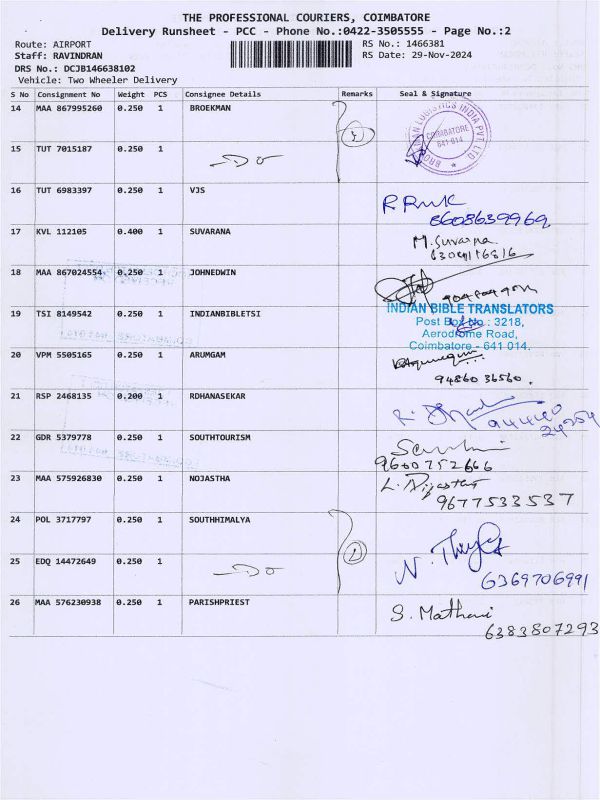 THE PROFESSIONAL COURIERS, COIMBATORE
Delivery Runsheet - PCC - Phone No.:0422-3505555 - Page No.:2
Route: AIRPORT
Staff: RAVINDRAN
DRS No.: DCJB146638102
Vehicle: Two Wheeler Delivery
RS No.: 1466381
RS Date: 29-Nov-2024
S No Consignment No Weight PCS Consignee Details Remarks Seal & Signature
14 MAA 867995260 0.250 1 BROEKMAN
COIMBATORE
641 014
15 TUT 7015187 0.250 1 Do
16 TUT 6983397 0.250 1 VJS
8608639969
17 KVL 112105 0.400 1 SUVARANA M. Suvarna
18 MAA 867024554 0.250 1 JOHNEDWIN
19 TSI 8149542 0.250 1 INDIANBIBLETSI
INDIAN BIBLE TRANSLATORS
Post Box No.: 3218,
Aerodrome Road,
Coimbatore - 641 014.
20 VPM 5505165 0.250 1 ARUMGAM
9486036560.
21 RSP 2468135 0.200 1 RDHANASEKAR
22 GDR 5379778 0.250 1 SOUTHTOURISM
9600752666
23 MAA 575926830 0.250 1 NOJASTHA
9677533537
24 POL 3717797 0.250 1 SOUTHHIMALYA
25 EDQ 14472649 0.250 1 Do
6369706991
26 MAA 576230938 0.250 1 PARISHPRIEST S. Mathavi
6383807293